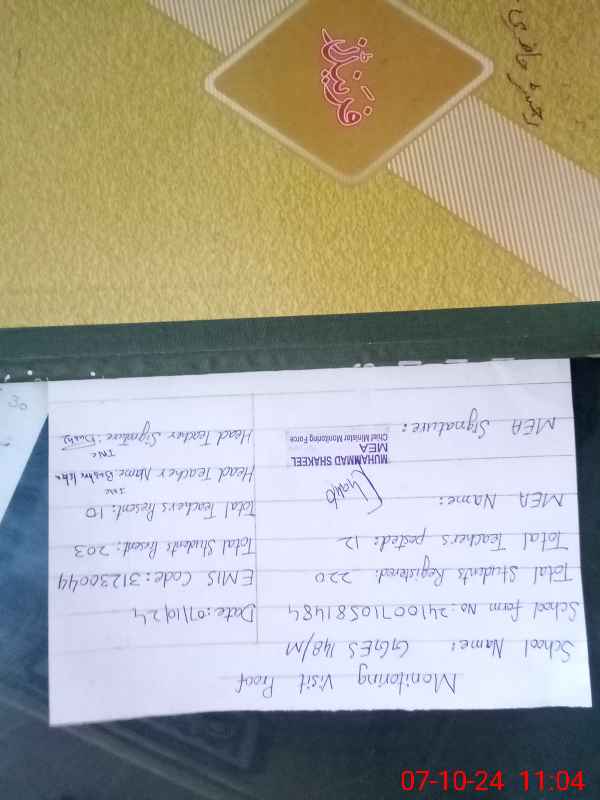 Monitoring Visit Proof
School Name: GGES 148/M
School form No: 24100710581484
Date: 07/10/24
Total Students Registered: 220
EMIS Code: 31230044
Total Teachers posted: 12
Total Students Present: 203
MEA Name:
Total Teachers Present: 10
INC
Head Teacher Name:
MUHAMMAD SHAKEEL
MEA
Chief Minister Monitoring Force
MEA Signature:
INC
Head Teacher Signature:
رجسٹر حاضری
07-10-24 11:04